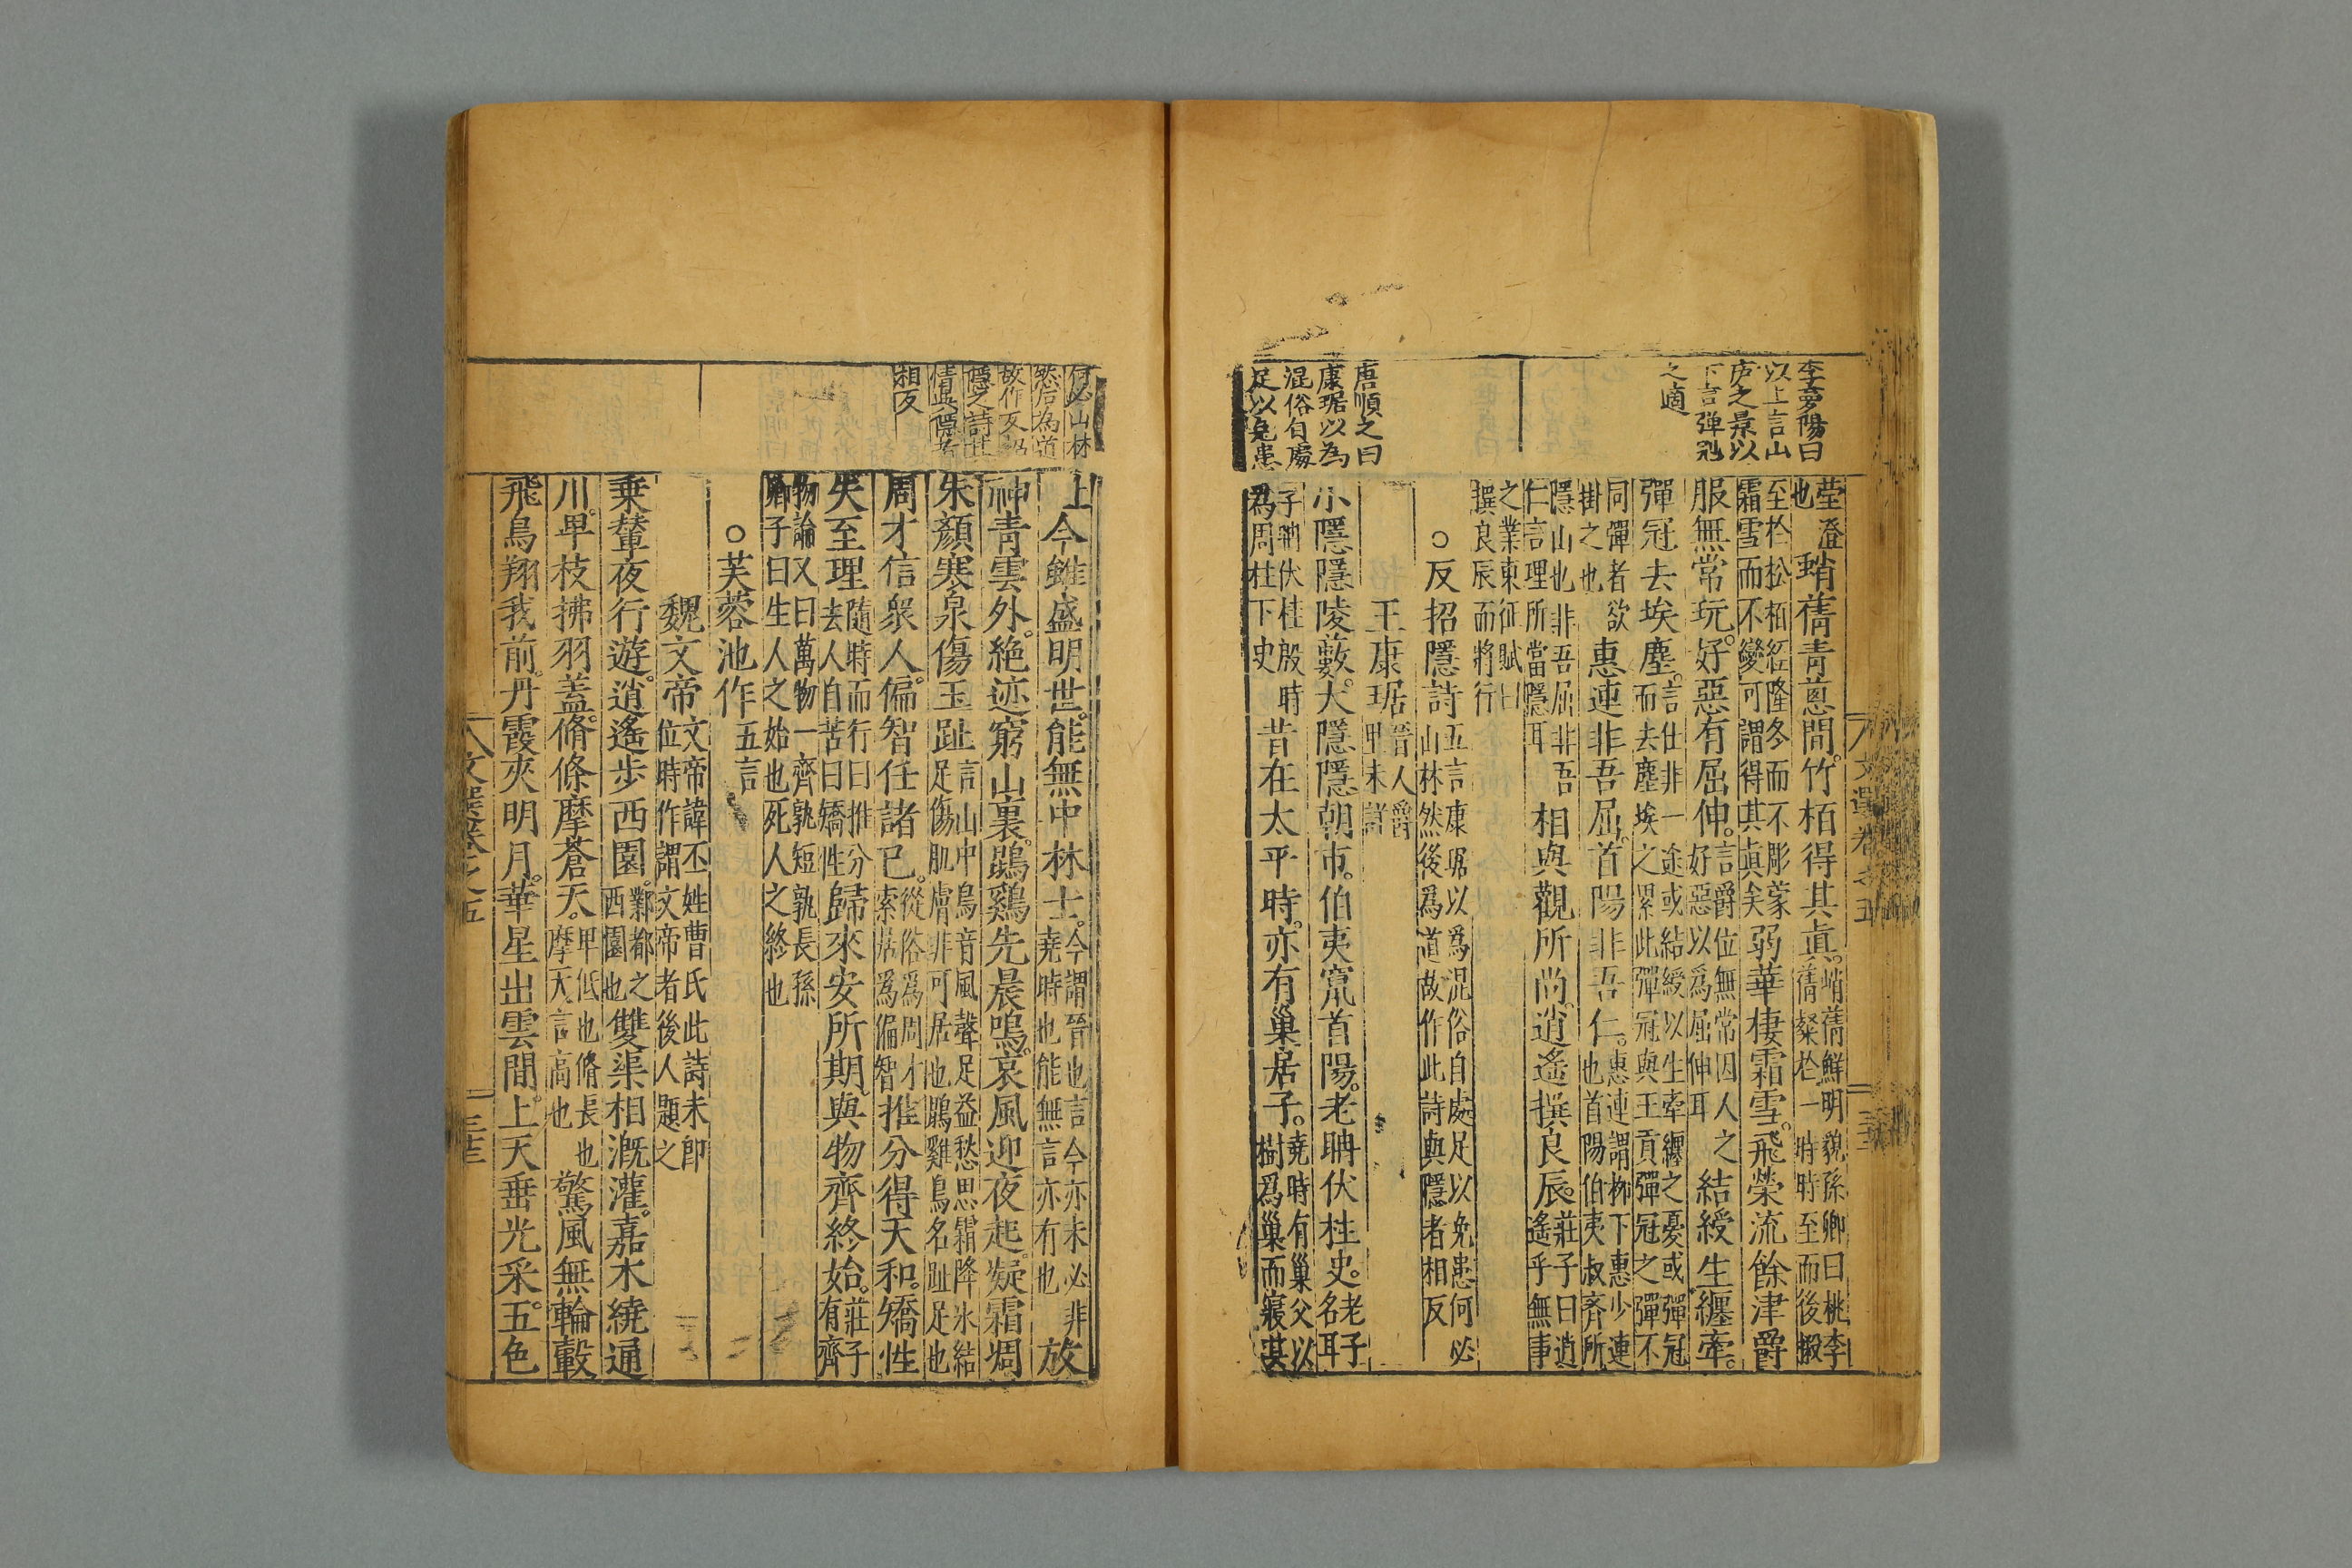 李夢陽曰
以上言山
庐之景以
下言彈冠
之適
唐順之曰
康琚以為
混俗自處
足以免患
瑩澄
也
峭蒨青蔥間。竹栢得其眞。
峭蒨鮮明貌孫卿曰桃李
蒨粲於一時時至而後殺
至於松栢經隆冬而不彫蒙
霜雪而不變可謂得其眞矣
弱華棲霜雪。飛榮流餘津爵
服無常玩。好惡有屈伸。
言爵位無常因人之
好惡以爲屈伸耳
結綬生纏牽。
彈冠去埃塵。
言仕非一途或結綬以生牽纏之憂或彈冠
而去塵埃之累此彈冠與王貢彈冠之彈不
同彈者欲
掛之也
惠連非吾屈。首陽非吾仁。
惠連謂柳下惠少連
也首陽伯夷叔齊所
隱山也非吾屈非吾
仁言理所當隱耳
相與觀所尚。逍遙撰良辰。
莊子曰逍
遙乎無事
之業東征賦曰
撰良辰而將行
○反招隱詩
五言康琚以爲混俗自處足以免患何必
山林然後爲道故作此詩與隱者相反
王康琚
晉人爵
里未詳
小隱隱陵藪。大隱隱朝市。伯夷竄首陽。老聃伏柱史。
老子
名耳
子聃伏柱殷時
爲周柱下史
昔在太平時。亦有巢居子。
堯時有巢父以
樹爲巢而寢其
文選卷之五
何必山林
然后為道
故作反招
隱之詩其
情與隱者
相反
上
今雖盛明世。能無中林士。
今謂晉也言今亦未必非
堯時也能無言亦有也
放
神青雲外。絶迹窮山裏。鵾鷄先晨鳴。哀風迎夜起。凝霜凋
朱顏寒泉傷玉趾
言山中鳥音風聲足益愁思霜降氷結
足傷肌膚非可居也鵾雞鳥名趾足也
周才信衆人。偏智任諸己。
從俗爲周才
索居爲偏智
推分得天和。矯性
失至理
隨時而行曰推分
去人自苦曰矯性
歸來安所期。與物齊終始。
莊子
有齊
物論又曰萬物一齊孰短孰長孫
卿子曰生人之始也死人之終也
○芙蓉池作
五言
魏文帝
文帝諱丕姓曹氏此詩未卽
位時作謂文帝者後人題之
乗輦夜行遊。逍遙步西園。
鄴都之
西園也
雙渠相漑灌。嘉木繞通
川。卑枝拂羽蓋。脩條摩蒼天。
卑低也脩長也
摩天言高也
驚風無輪轂
飛鳥翔我前。丹霞夾明月。華星出雲間。上天垂光采。五色
文選卷之五